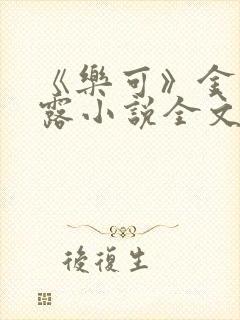 《樂可》金
露小説全文
後復生